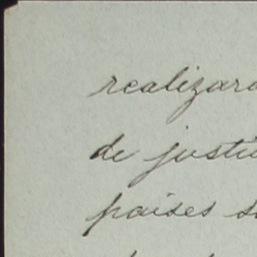 realizar
de justi
paises s